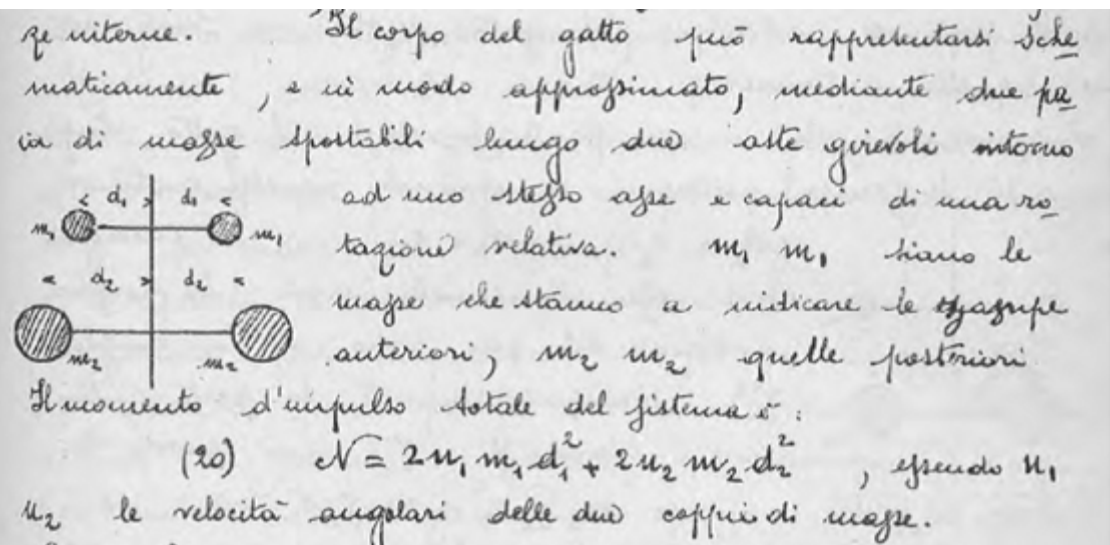 ze interne. Il corpo del gatto può rappresentarsi sche
maticamente, e in modo approssimato, mediante due pa
ia di masse spostabili lungo due aste girevoli intorno
ad uno stesso asse e capaci di una ro
tazione relativa. m₁ m₁ siano le
masse che stanno a indicare le zampe
anteriori, m₂ m₂ quelle posteriori
d₁ d₁
m₁ m₁
d₂ d₂
m₂ m₂
Il momento d'impulso totale del sistema è:
(20) N = 2 u₁ m₁ d₁² + 2 u₂ m₂ d₂², essendo u₁
u₂ le velocità angolari delle due coppie di masse.